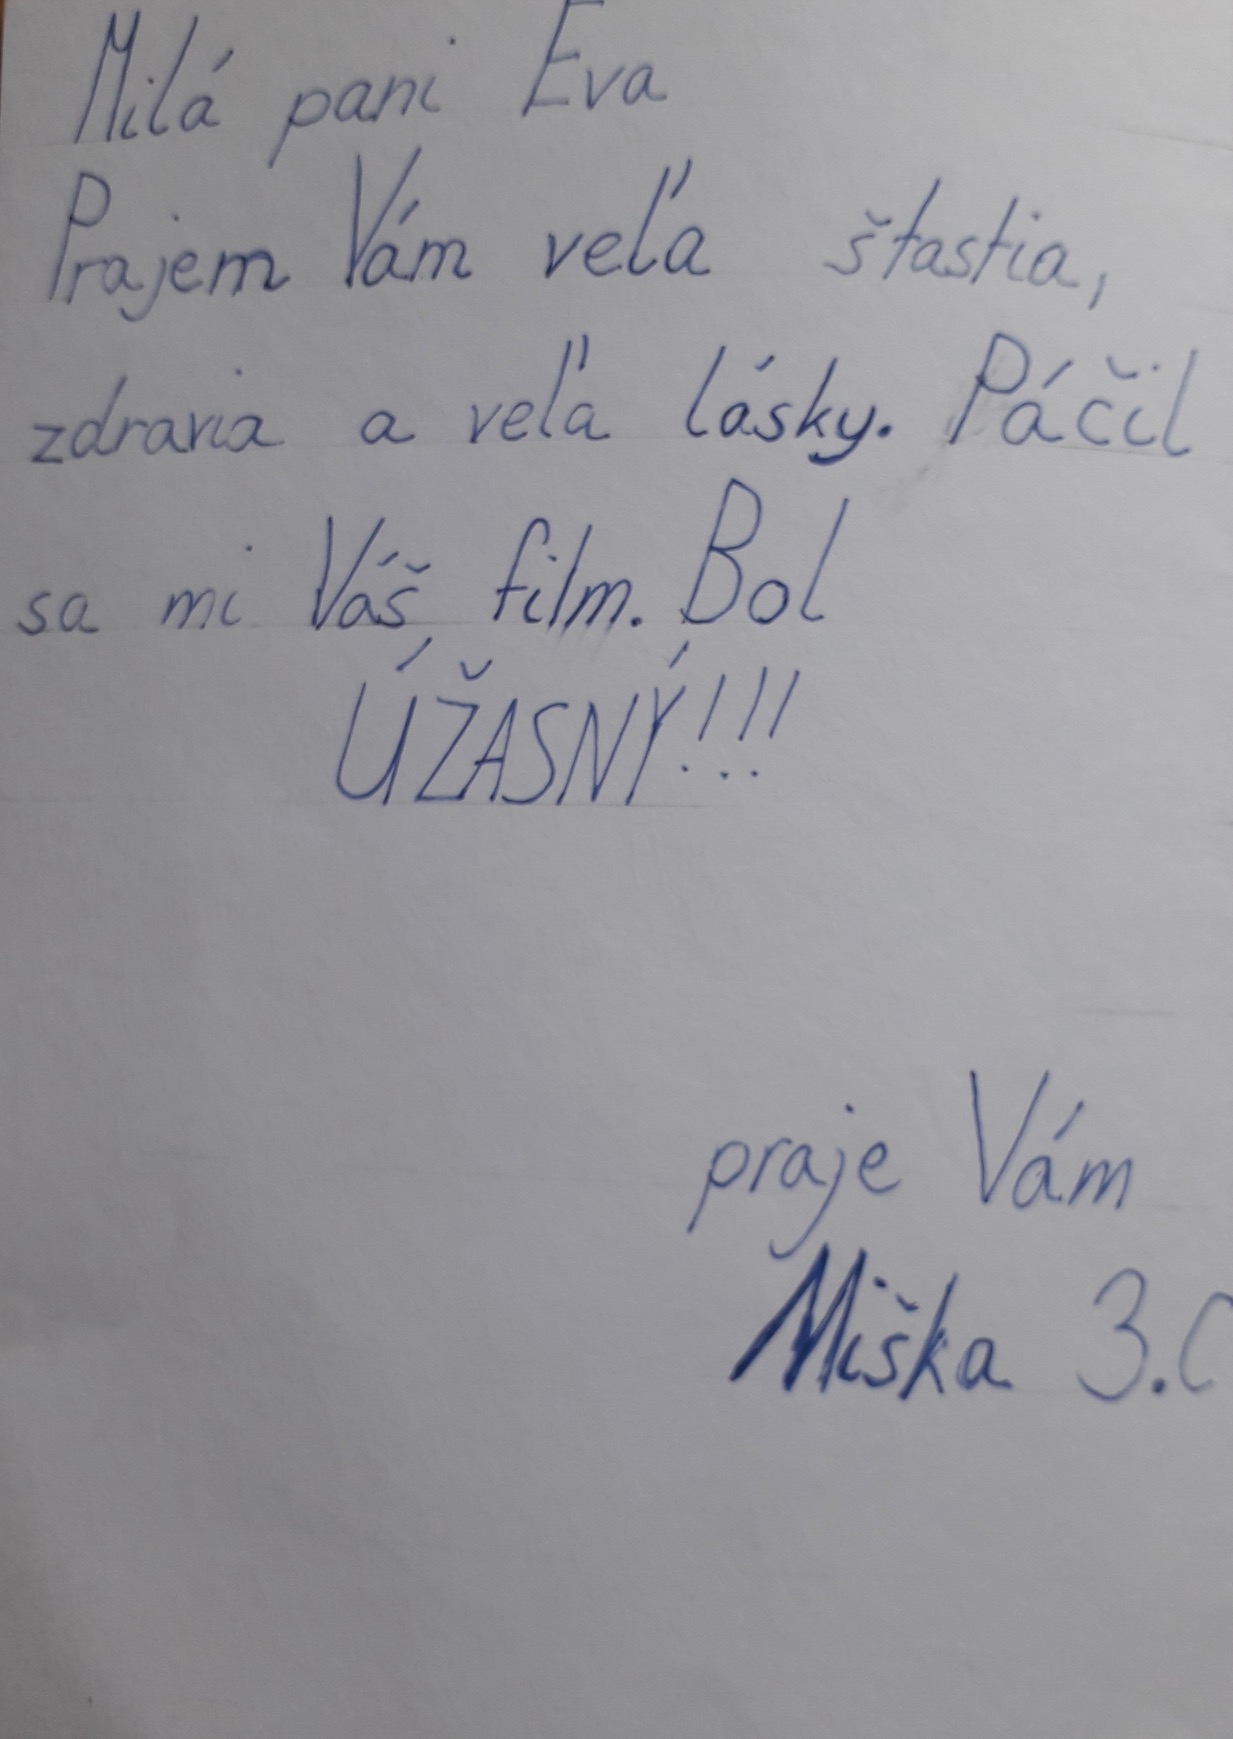 Milá pani Eva
Prajem Vám veľa štastia,
zdravia a veľa lásky. Páčil
sa mi Váš film. Bol
ÚŽASNÝ!!!
praje Vám
Miška 3.C